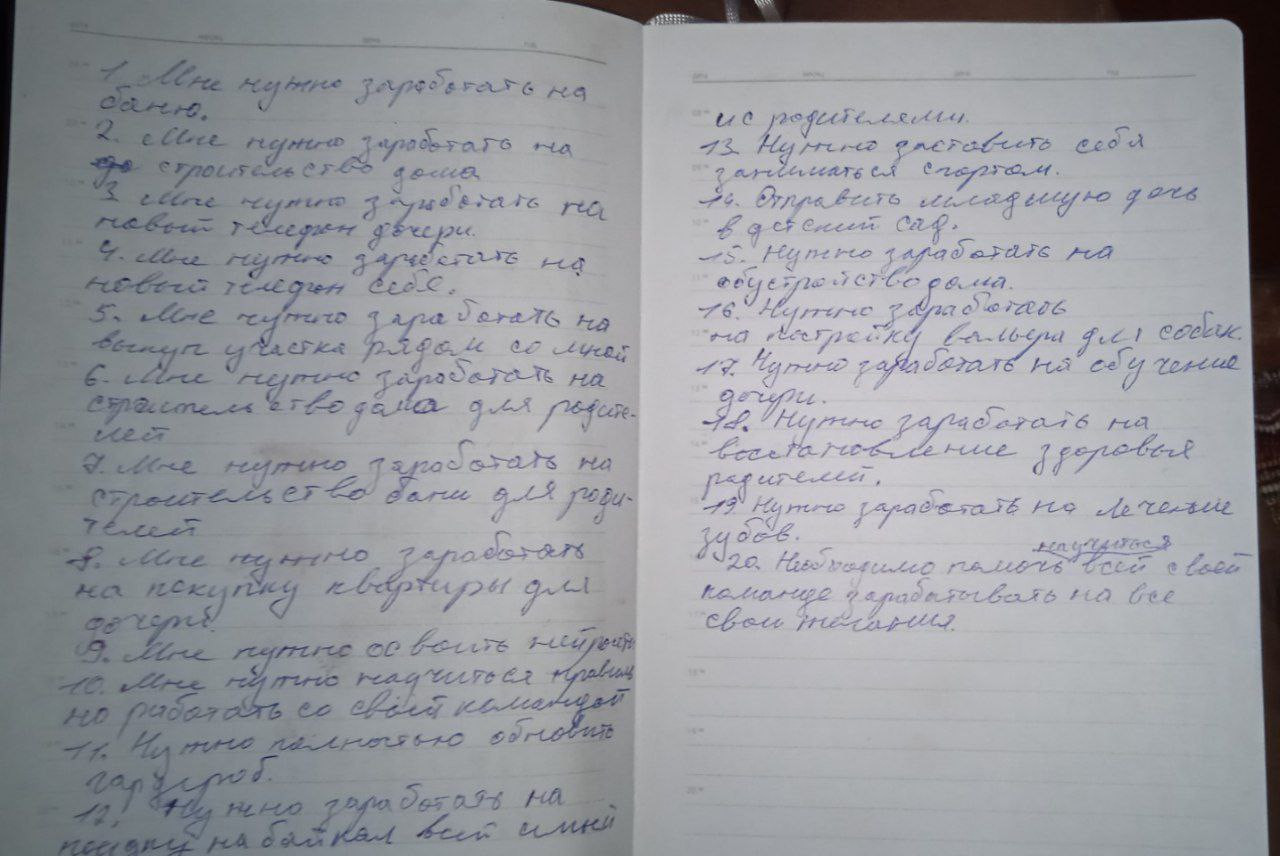 1. Мне нужно заработать на
баню.
2. Мне нужно заработать на
строительство дома
3. Мне нужно заработать на
новый телефон дочери.
4. Мне нужно заработать на
новый телефон себе.
5. Мне нужно заработать на
выкуп участка рядом со мной
6. Мне нужно заработать на
строительство дома для родите-
лей
7. Мне нужно заработать на
строительство бани для роди-
телей
8. Мне нужно заработать
на покупку квартиры для
дочери.
9. Мне нужно освоить нейросети
10. Мне нужно научиться правиль
но работать со своей командой
11. Нужно полностью обновить
гардероб.
12. Нужно заработать на
поездку на байкал всей семьей
и с родителями.
13. Нужно заставить себя
заниматься спортом.
14. Отправить младшую дочь
в детский сад.
15. Нужно заработать на
обустройство дома.
16. Нужно заработать
на постройку вальера для собак.
17. Нужно заработать на обучение
дочери.
18. Нужно заработать на
восстановление здоровья
родителей.
19. Нужно заработать на лечение
зубов.
научиться
20. Необходимо помочь всей своей
команде зарабатывать на все
свои желания.